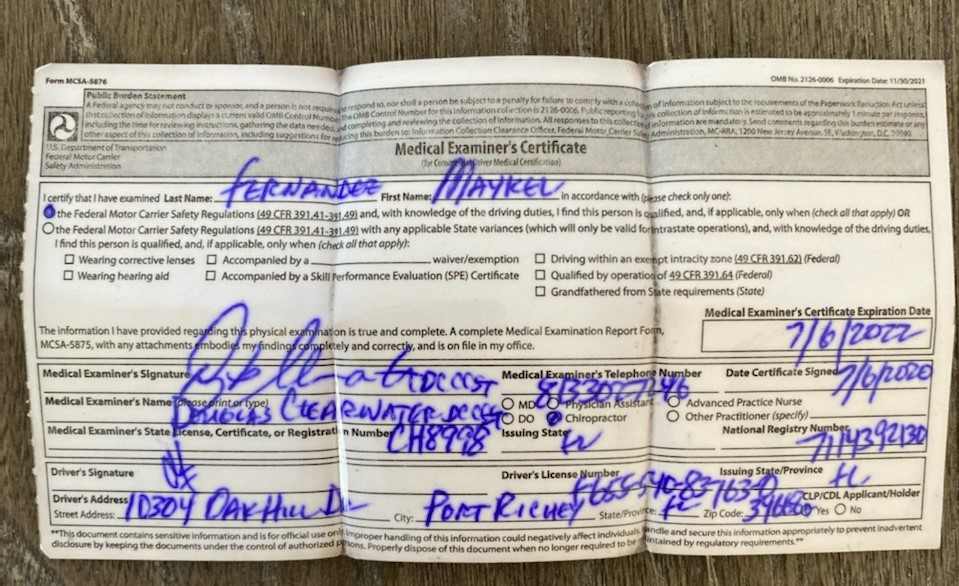 Form MCSA-5876 OMB No. 2126-0006 Expiration Date: 11/30/2021
Public Burden Statement
A Federal agency may not conduct or sponsor, and a person is not required to respond to, nor shall a person be subject to a penalty for failure to comply with a collection of information subject to the requirements of the Paperwork Reduction Act unless
that collection of information displays a current valid OMB Control Number. The OMB Control Number for this information collection is 2126-0006. Public reporting for this collection of information is estimated to be approximately 1 minute per response,
including the time for reviewing instructions, gathering the data needed, and completing and reviewing the collection of information. All responses to this collection of information are mandatory. Send comments regarding this burden estimate or any
other aspect of this collection of information, including suggestions for reducing this burden to: Information Collection Clearance Officer, Federal Motor Carrier Safety Administration, MC-RRA, 1200 New Jersey Avenue, SE, Washington, D.C. 20590.
U.S. Department of Transportation
Federal Motor Carrier
Safety Administration
Medical Examiner's Certificate
(for Commercial Driver Medical Certification)
I certify that I have examined Last Name: FERNANDEZ First Name: MAYKEL in accordance with (please check only one):
the Federal Motor Carrier Safety Regulations (49 CFR 391.41-391.49) and, with knowledge of the driving duties, I find this person is qualified, and, if applicable, only when (check all that apply) OR
the Federal Motor Carrier Safety Regulations (49 CFR 391.41-391.49) with any applicable State variances (which will only be valid for intrastate operations), and, with knowledge of the driving duties,
I find this person is qualified, and, if applicable, only when (check all that apply):
Wearing corrective lenses Accompanied by a waiver/exemption Driving within an exempt intracity zone (49 CFR 391.62) (Federal)
Wearing hearing aid Accompanied by a Skill Performance Evaluation (SPE) Certificate Qualified by operation of 49 CFR 391.64 (Federal)
Grandfathered from State requirements (State)
Medical Examiner's Certificate Expiration Date
The information I have provided regarding this physical examination is true and complete. A complete Medical Examination Report Form,
MCSA-5875, with any attachments embodies my findings completely and correctly, and is on file in my office.
7/6/2022
Medical Examiner's Signature DCCCST Medical Examiner's Telephone Number Date Certificate Signed 7/6/2020
Medical Examiner's Name (please print or type) DOUGLAS CLEARWATER DCCCST
MD Physician Assistant Advanced Practice Nurse
DO Chiropractor Other Practitioner (specify)
Medical Examiner's State License, Certificate, or Registration Number CH8998 Issuing State FL National Registry Number 7114392130
Driver's Signature Driver's License Number Issuing State/Province FL
Driver's Address
Street Address: 10304 OAK HILL DR City: PORT RICHEY State/Province: FL Zip Code: CLP/CDL Applicant/Holder Yes No
**This document contains sensitive information and is for official use only. Improper handling of this information could negatively affect individuals. Handle and secure this information appropriately to prevent inadvertent
disclosure by keeping the documents under the control of authorized persons. Properly dispose of this document when no longer required to be maintained by regulatory requirements.**